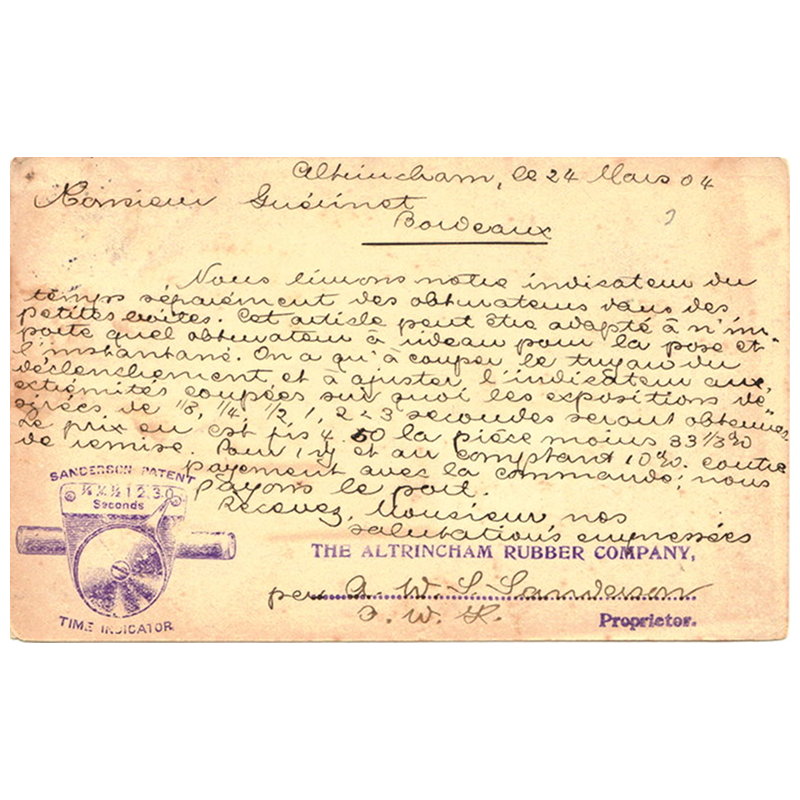 Altrincham, le 24 Mars 04
Monsieur Guérinot
Bordeaux
Nous livrons notre indicateur du
temps séparément des obturateurs dans des
petites boites. Cet article peut être adapté à n'im-
porte quel obturateur à rideau pour la pose et
l'instantané. On a qu'à couper le tuyau du
déclenchement et à ajuster l'indicateur aux
extrémités coupées sur quoi les expositions dé-
sirées de 1/8, 1/4, 1/2, 1, 2 & 3 secondes seront obtenues
Le prix en est frs 4.50 la pièce moins 33 1/3 %
de remise. Pour et au comptant 10%. contre
payement avec la commande; nous
payons le port.
Recevez, Monsieur nos
salutations empressées
SANDERSON PATENT
1/8 1/4 1/2 1 2.3.0
Seconds
TIME INDICATOR
THE ALTRINCHAM RUBBER COMPANY,
per A. W. S. Sanderson
Proprietor.